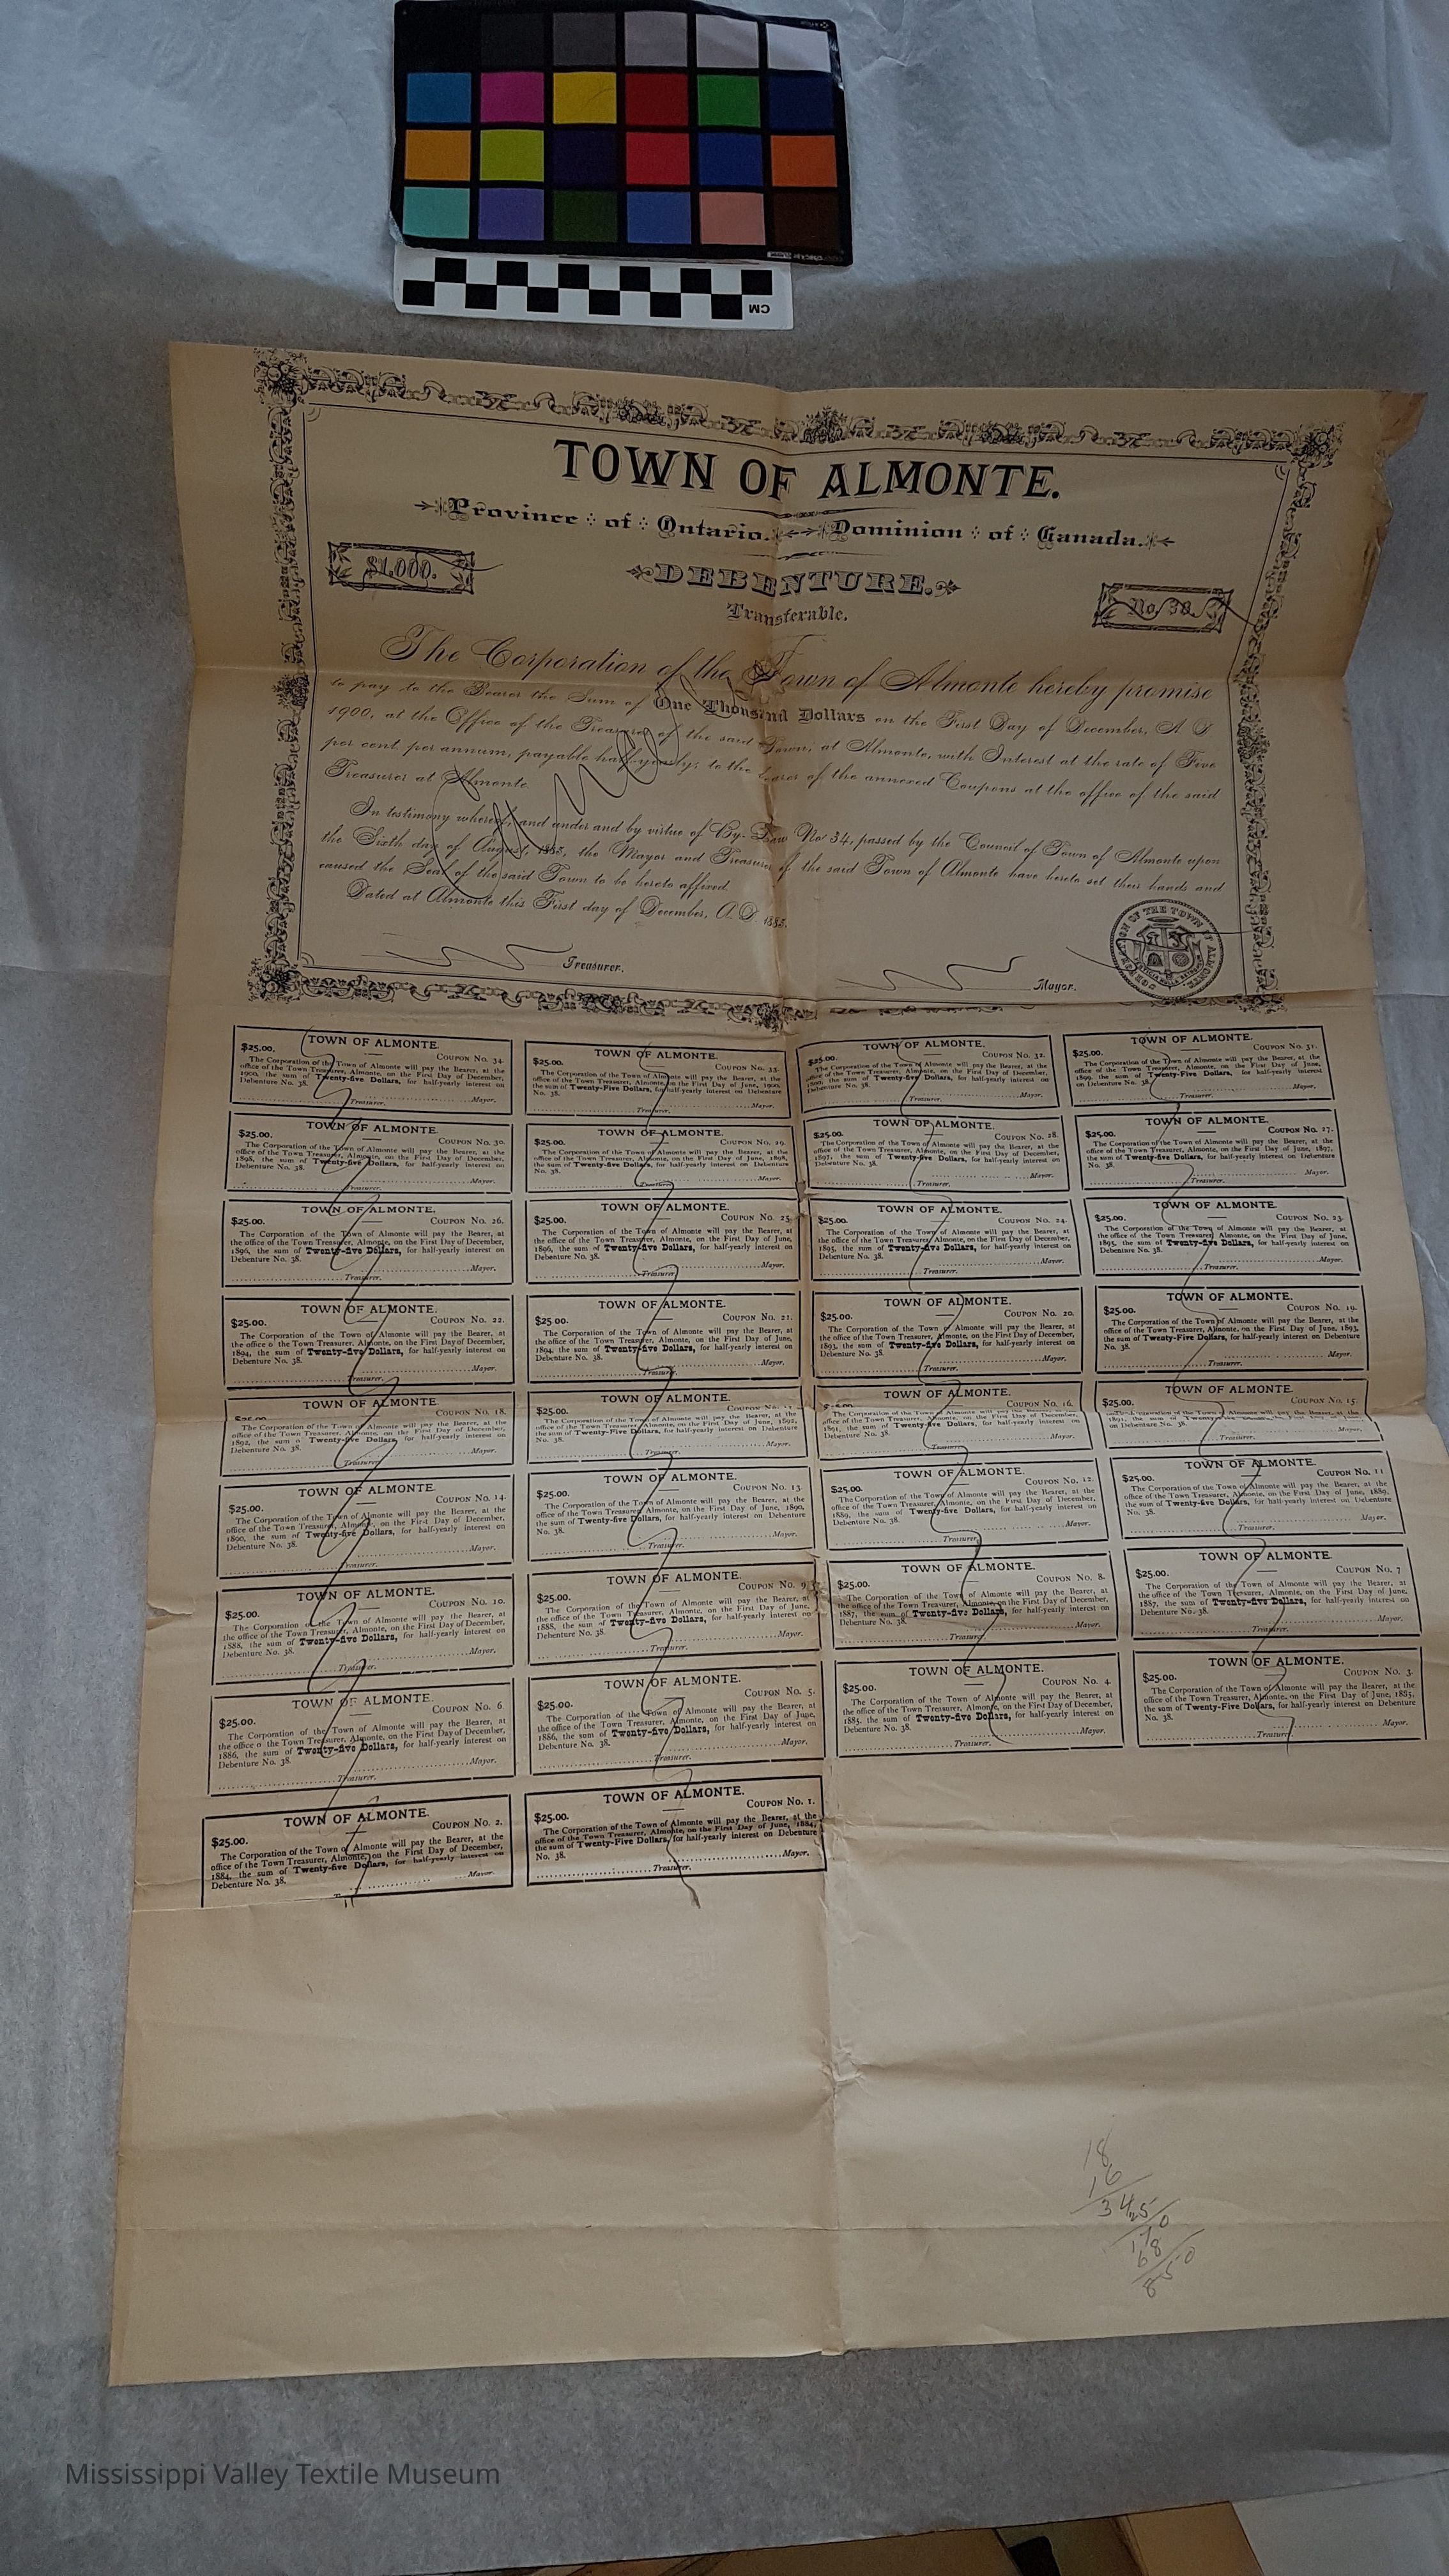 CM
TOWN OF ALMONTE.
Province of Ontario. Dominion of Canada.
$1,000.
DEBENTURE.
No. 38.
Transferable.
The Corporation of the Town of Almonte hereby promise
to pay to the Bearer the Sum of One Thousand Dollars on the First Day of December, A. D.
1900, at the Office of the Treasurer of the said Town, at Almonte, with Interest at the rate of Five
per cent. per annum, payable half-yearly, to the bearer of the annexed Coupons at the office of the said
Treasurer at Almonte.
In testimony whereof, and under and by virtue of By-Law No 34, passed by the Council of Town of Almonte upon
the Sixth day of August, the Mayor and Treasurer of the said Town of Almonte have hereto set their hands and
caused the Seal of the said Town to be hereto affixed.
Dated at Almonte this First day of December, A. D.
Treasurer.
Mayor.
CORPORATION OF THE TOWN OF ALMONTE
TOWN OF ALMONTE.
$25.00. COUPON NO. 34.
The Corporation of the Town of Almonte will pay the Bearer, at the
office of the Town Treasurer, Almonte, on the First Day of December,
1900, the sum of Twenty-five Dollars, for half-yearly interest on
Debenture No. 38.
Mayor.
Treasurer.
TOWN OF ALMONTE.
$25.00. COUPON NO. 33.
The Corporation of the Town of Almonte will pay the Bearer, at the
office of the Town Treasurer, Almonte, on the First Day of June, 1900,
the sum of Twenty-five Dollars, for half-yearly interest on Debenture
No. 38.
Mayor.
Treasurer.
TOWN OF ALMONTE.
$25.00. COUPON NO. 32.
The Corporation of the Town of Almonte will pay the Bearer, at the
office of the Town Treasurer, Almonte, on the First Day of December,
the sum of Twenty-five Dollars, for half-yearly interest on
Debenture No. 38.
Mayor.
Treasurer.
TOWN OF ALMONTE.
$25.00. COUPON NO. 31.
The Corporation of the Town of Almonte will pay the Bearer, at the
office of the Town Treasurer, Almonte, on the First Day of June,
1899, the sum of Twenty-Five Dollars, for half-yearly interest
on Debenture No. 38.
Mayor.
Treasurer.
TOWN OF ALMONTE.
$25.00. COUPON NO. 30.
The Corporation of the Town of Almonte will pay the Bearer, at the
office of the Town Treasurer, Almonte, on the First Day of December,
1898, the sum of Twenty-five Dollars, for half-yearly interest on
Debenture No. 38.
Mayor.
Treasurer.
TOWN OF ALMONTE.
$25.00. COUPON NO. 29.
The Corporation of the Town of Almonte will pay the Bearer, at the
office of the Town Treasurer, Almonte, on the First Day of June, 1898,
the sum of Twenty-five Dollars, for half-yearly interest on Debenture
No. 38.
Mayor.
Treasurer.
TOWN OF ALMONTE.
$25.00. COUPON NO. 28.
The Corporation of the Town of Almonte will pay the Bearer, at the
office of the Town Treasurer, Almonte, on the First Day of December,
1897, the sum of Twenty-five Dollars, for half-yearly interest on
Debenture No. 38.
Mayor.
Treasurer.
TOWN OF ALMONTE.
$25.00. COUPON NO. 27.
The Corporation of the Town of Almonte will pay the Bearer, at the
office of the Town Treasurer, Almonte, on the First Day of June, 1897,
the sum of Twenty-five Dollars, for half-yearly interest on Debenture
No. 38.
Mayor.
Treasurer.
TOWN OF ALMONTE.
$25.00. COUPON NO. 26.
The Corporation of the Town of Almonte will pay the Bearer, at
the office of the Town Treasurer, Almonte, on the First Day of December,
1896, the sum of Twenty-five Dollars, for half-yearly interest on
Debenture No. 38.
Mayor.
Treasurer.
TOWN OF ALMONTE.
$25.00. COUPON NO. 25.
The Corporation of the Town of Almonte will pay the Bearer, at
the office of the Town Treasurer, Almonte, on the First Day of June,
1896, the sum of Twenty-five Dollars, for half-yearly interest on
Debenture No. 38.
Mayor.
Treasurer.
TOWN OF ALMONTE.
$25.00. COUPON NO. 24.
The Corporation of the Town of Almonte will pay the Bearer, at
the office of the Town Treasurer, Almonte, on the First Day of December,
1895, the sum of Twenty-five Dollars, for half-yearly interest on
Debenture No. 38.
Mayor.
Treasurer.
TOWN OF ALMONTE.
$25.00. COUPON NO. 23.
The Corporation of the Town of Almonte will pay the Bearer, at
the office of the Town Treasurer, Almonte, on the First Day of June,
1895, the sum of Twenty-five Dollars, for half-yearly interest on
Debenture No. 38.
Mayor.
Treasurer.
TOWN OF ALMONTE.
$25.00. COUPON NO. 22.
The Corporation of the Town of Almonte will pay the Bearer, at
the office o the Town Treasurer, Almonte, on the First Day of December,
1894, the sum of Twenty-five Dollars, for half-yearly interest on
Debenture No. 38.
Mayor.
Treasurer.
TOWN OF ALMONTE.
$25.00. COUPON NO. 21.
The Corporation of the Town of Almonte will pay the Bearer, at
the office of the Town Treasurer, Almonte, on the First Day of June,
1894, the sum of Twenty-five Dollars, for half-yearly interest on
Debenture No. 38.
Mayor.
Treasurer.
TOWN OF ALMONTE.
$25.00. COUPON NO. 20.
The Corporation of the Town of Almonte will pay the Bearer, at
the office of the Town Treasurer, Almonte, on the First Day of December,
1893, the sum of Twenty-five Dollars, for half-yearly interest on
Debenture No. 38.
Mayor.
Treasurer.
TOWN OF ALMONTE.
$25.00. COUPON NO. 19.
The Corporation of the Town of Almonte will pay the Bearer, at the
office of the Town Treasurer, Almonte, on the First Day of June, 1893,
the sum of Twenty-Five Dollars, for half-yearly interest on Debenture
No. 38.
Mayor.
Treasurer.
TOWN OF ALMONTE.
COUPON NO. 18.
The Corporation of the Town of Almonte will pay the Bearer, at the
office of the Town Treasurer, Almonte, on the First Day of December,
1892, the sum o Twenty-five Dollars, for half-yearly interest on
Debenture No. 38.
Mayor.
Treasurer.
TOWN OF ALMONTE.
$25.00.
The Corporation of the Town of Almonte will pay the Bearer, at the
office of the Town Treasurer, Almonte, on the First Day of June, 1892,
the sum of Twenty-Five Dollars, for half-yearly interest on Debenture
No. 38.
Mayor.
Treasurer.
TOWN OF ALMONTE.
COUPON NO. 16.
The Corporation of the Town of Almonte will pay the Bearer, at the
office of the Town Treasurer, Almonte, on the First Day of December,
1891, the sum of Twenty-five Dollars, for half-yearly interest on
Debenture No. 38.
Mayor.
Treasurer.
TOWN OF ALMONTE.
$25.00. COUPON NO. 15.
1891, the sum of
No. 38.
Mayor.
Treasurer.
TOWN OF ALMONTE.
$25.00. COUPON NO. 14.
The Corporation of the Town of Almonte will pay the Bearer, at the
office of the Town Treasurer, Almonte, on the First Day of December,
1890, the sum of Twenty-five Dollars, for half-yearly interest on
Debenture No. 38.
Mayor.
Treasurer.
TOWN OF ALMONTE.
$25.00. COUPON NO. 13.
The Corporation of the Town of Almonte will pay the Bearer, at the
office of the Town Treasurer, Almonte, on the First Day of June, 1890,
the sum of Twenty-five Dollars, for half-yearly interest on Debenture
No. 38.
Mayor.
Treasurer.
TOWN OF ALMONTE.
$25.00. COUPON NO. 12.
The Corporation of the Town of Almonte will pay the Bearer, at the
office of the Town Treasurer, Almonte, on the First Day of December,
1889, the sum of Twenty-five Dollars, for half-yearly interest on
Debenture No. 38.
Mayor.
Treasurer.
TOWN OF ALMONTE.
$25.00. COUPON NO. 11
The Corporation of the Town of Almonte will pay the Bearer, at the
office of the Town Treasurer, Almonte, on the First Day of June, 1889,
the sum of Twenty-five Dollars, for half-yearly interest on Debenture
No. 38.
Mayor.
Treasurer.
TOWN OF ALMONTE.
$25.00. COUPON NO. 10.
The Corporation of the Town of Almonte will pay the Bearer, at
the office of the Town Treasurer, Almonte, on the First Day of December,
1888, the sum of Twenty-five Dollars, for half-yearly interest on
Debenture No. 38.
Mayor.
Treasurer.
TOWN OF ALMONTE.
$25.00. COUPON NO. 9.
The Corporation of the Town of Almonte will pay the Bearer, at
the office of the Town Treasurer, Almonte, on the First Day of June,
1888, the sum of Twenty-five Dollars, for half-yearly interest on
Debenture No. 38.
Mayor.
Treasurer.
TOWN OF ALMONTE.
$25.00. COUPON NO. 8.
The Corporation of the Town of Almonte will pay the Bearer, at
the office of the Town Treasurer, Almonte, on the First Day of December,
1887, the sum of Twenty-five Dollars, for half-yearly interest on
Debenture No. 38.
Mayor.
Treasurer.
TOWN OF ALMONTE.
$25.00. COUPON NO. 7
The Corporation of the Town of Almonte will pay the Bearer, at
the office of the Town Treasurer, Almonte, on the First Day of June,
1887, the sum of Twenty-five Dollars, for half-yearly interest on
Debenture No. 38.
Mayor.
Treasurer.
TOWN OF ALMONTE.
$25.00. COUPON NO. 6
The Corporation of the Town of Almonte will pay the Bearer, at
the office o the Town Treasurer, Almonte, on the First Day of December,
1886, the sum of Twenty-five Dollars, for half-yearly interest on
Debenture No. 38.
Mayor.
Treasurer.
TOWN OF ALMONTE.
$25.00. COUPON NO. 5.
The Corporation of the Town of Almonte will pay the Bearer, at
the office of the Town Treasurer, Almonte, on the First Day of June,
1886, the sum of Twenty-five Dollars, for half-yearly interest on
Debenture No. 38.
Mayor.
Treasurer.
TOWN OF ALMONTE.
$25.00. COUPON NO. 4.
The Corporation of the Town of Almonte will pay the Bearer, at
the office of the Town Treasurer, Almonte, on the First Day of December,
1885, the sum of Twenty-five Dollars, for half-yearly interest on
Debenture No. 38.
Mayor.
Treasurer.
TOWN OF ALMONTE.
$25.00. COUPON NO. 3.
The Corporation of the Town of Almonte will pay the Bearer, at the
office of the Town Treasurer, Almonte, on the First Day of June, 1885,
the sum of Twenty-Five Dollars, for half-yearly interest on Debenture
No. 38.
Mayor.
Treasurer.
TOWN OF ALMONTE.
$25.00. COUPON NO. 2.
The Corporation of the Town of Almonte will pay the Bearer, at the
office of the Town Treasurer, Almonte, on the First Day of December,
1884, the sum of Twenty-five Dollars, for half-yearly interest on
Debenture No. 38.
Mayor.
TOWN OF ALMONTE.
$25.00. COUPON NO. 1.
The Corporation of the Town of Almonte will pay the Bearer, at the
office of the Town Treasurer, Almonte, on the First Day of June, 1884,
the sum of Twenty-Five Dollars, for half-yearly interest on Debenture
No. 38.
Mayor.
Treasurer.
18
16
34
25
170
68
850
Mississippi Valley Textile Museum